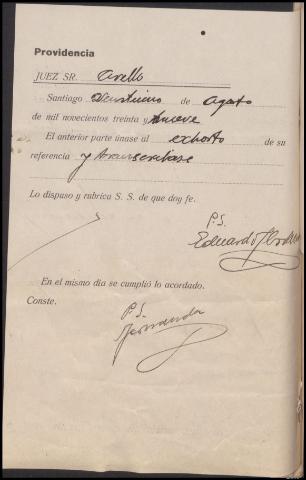 Providencia
JUEZ SR. Arello
Santiago Veintiuno de Agosto
de mil novecientos treinta y nueve
El anterior parte únase al exhorto de su
referencia y transcríbase
Lo dispuso y rubrica S. S. de que doy fe.
P.S.
Eduardo
En el mismo día se cumplió lo acordado.
Conste.
P.S.